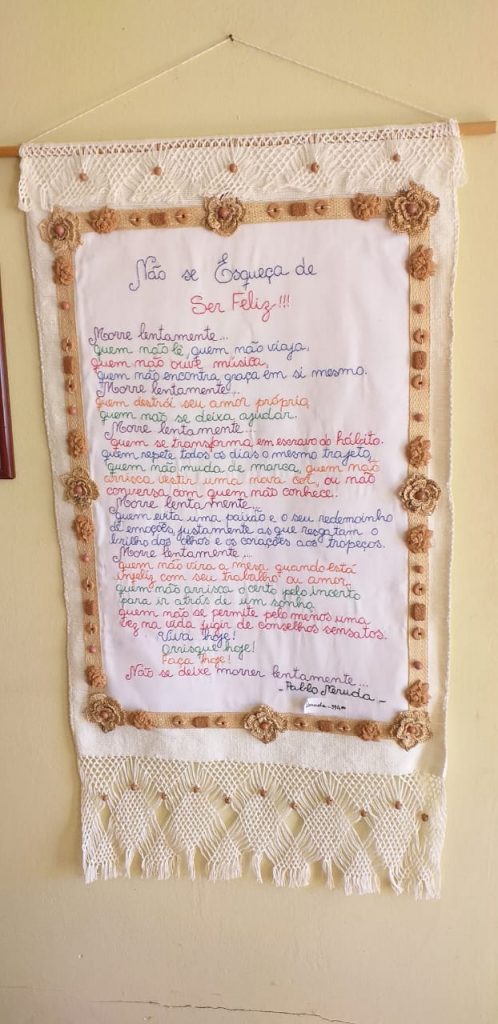 Não se Esqueça de
Ser Feliz!!!
Morre lentamente...
quem não lê, quem não viaja,
quem não ouve música,
quem não encontra graça em si mesmo.
Morre lentamente...
quem destrói seu amor próprio,
quem não se deixa ajudar.
Morre lentamente...
quem se transforma em escravo do hábito.
quem repete todos os dias o mesmo trajeto,
quem não muda de marca, quem não
arrisca vestir uma nova cor, ou não
conversa com quem não conhece.
Morre lentamente...
quem evita uma paixão e o seu redemoinho
de emoções, justamente as que resgatam o
brilho dos olhos e os corações aos tropeços.
Morre lentamente...
quem não vira a mesa quando está
infeliz com seu trabalho ou amor,
quem não arrisca o certo pelo incerto
para ir atrás de um sonho,
quem não se permite pelo menos uma
vez na vida fugir de conselhos sensatos.
Viva hoje!
Arrisque hoje!
Faça hoje!
Não se deixe morrer lentamente...
- Pablo Neruda -